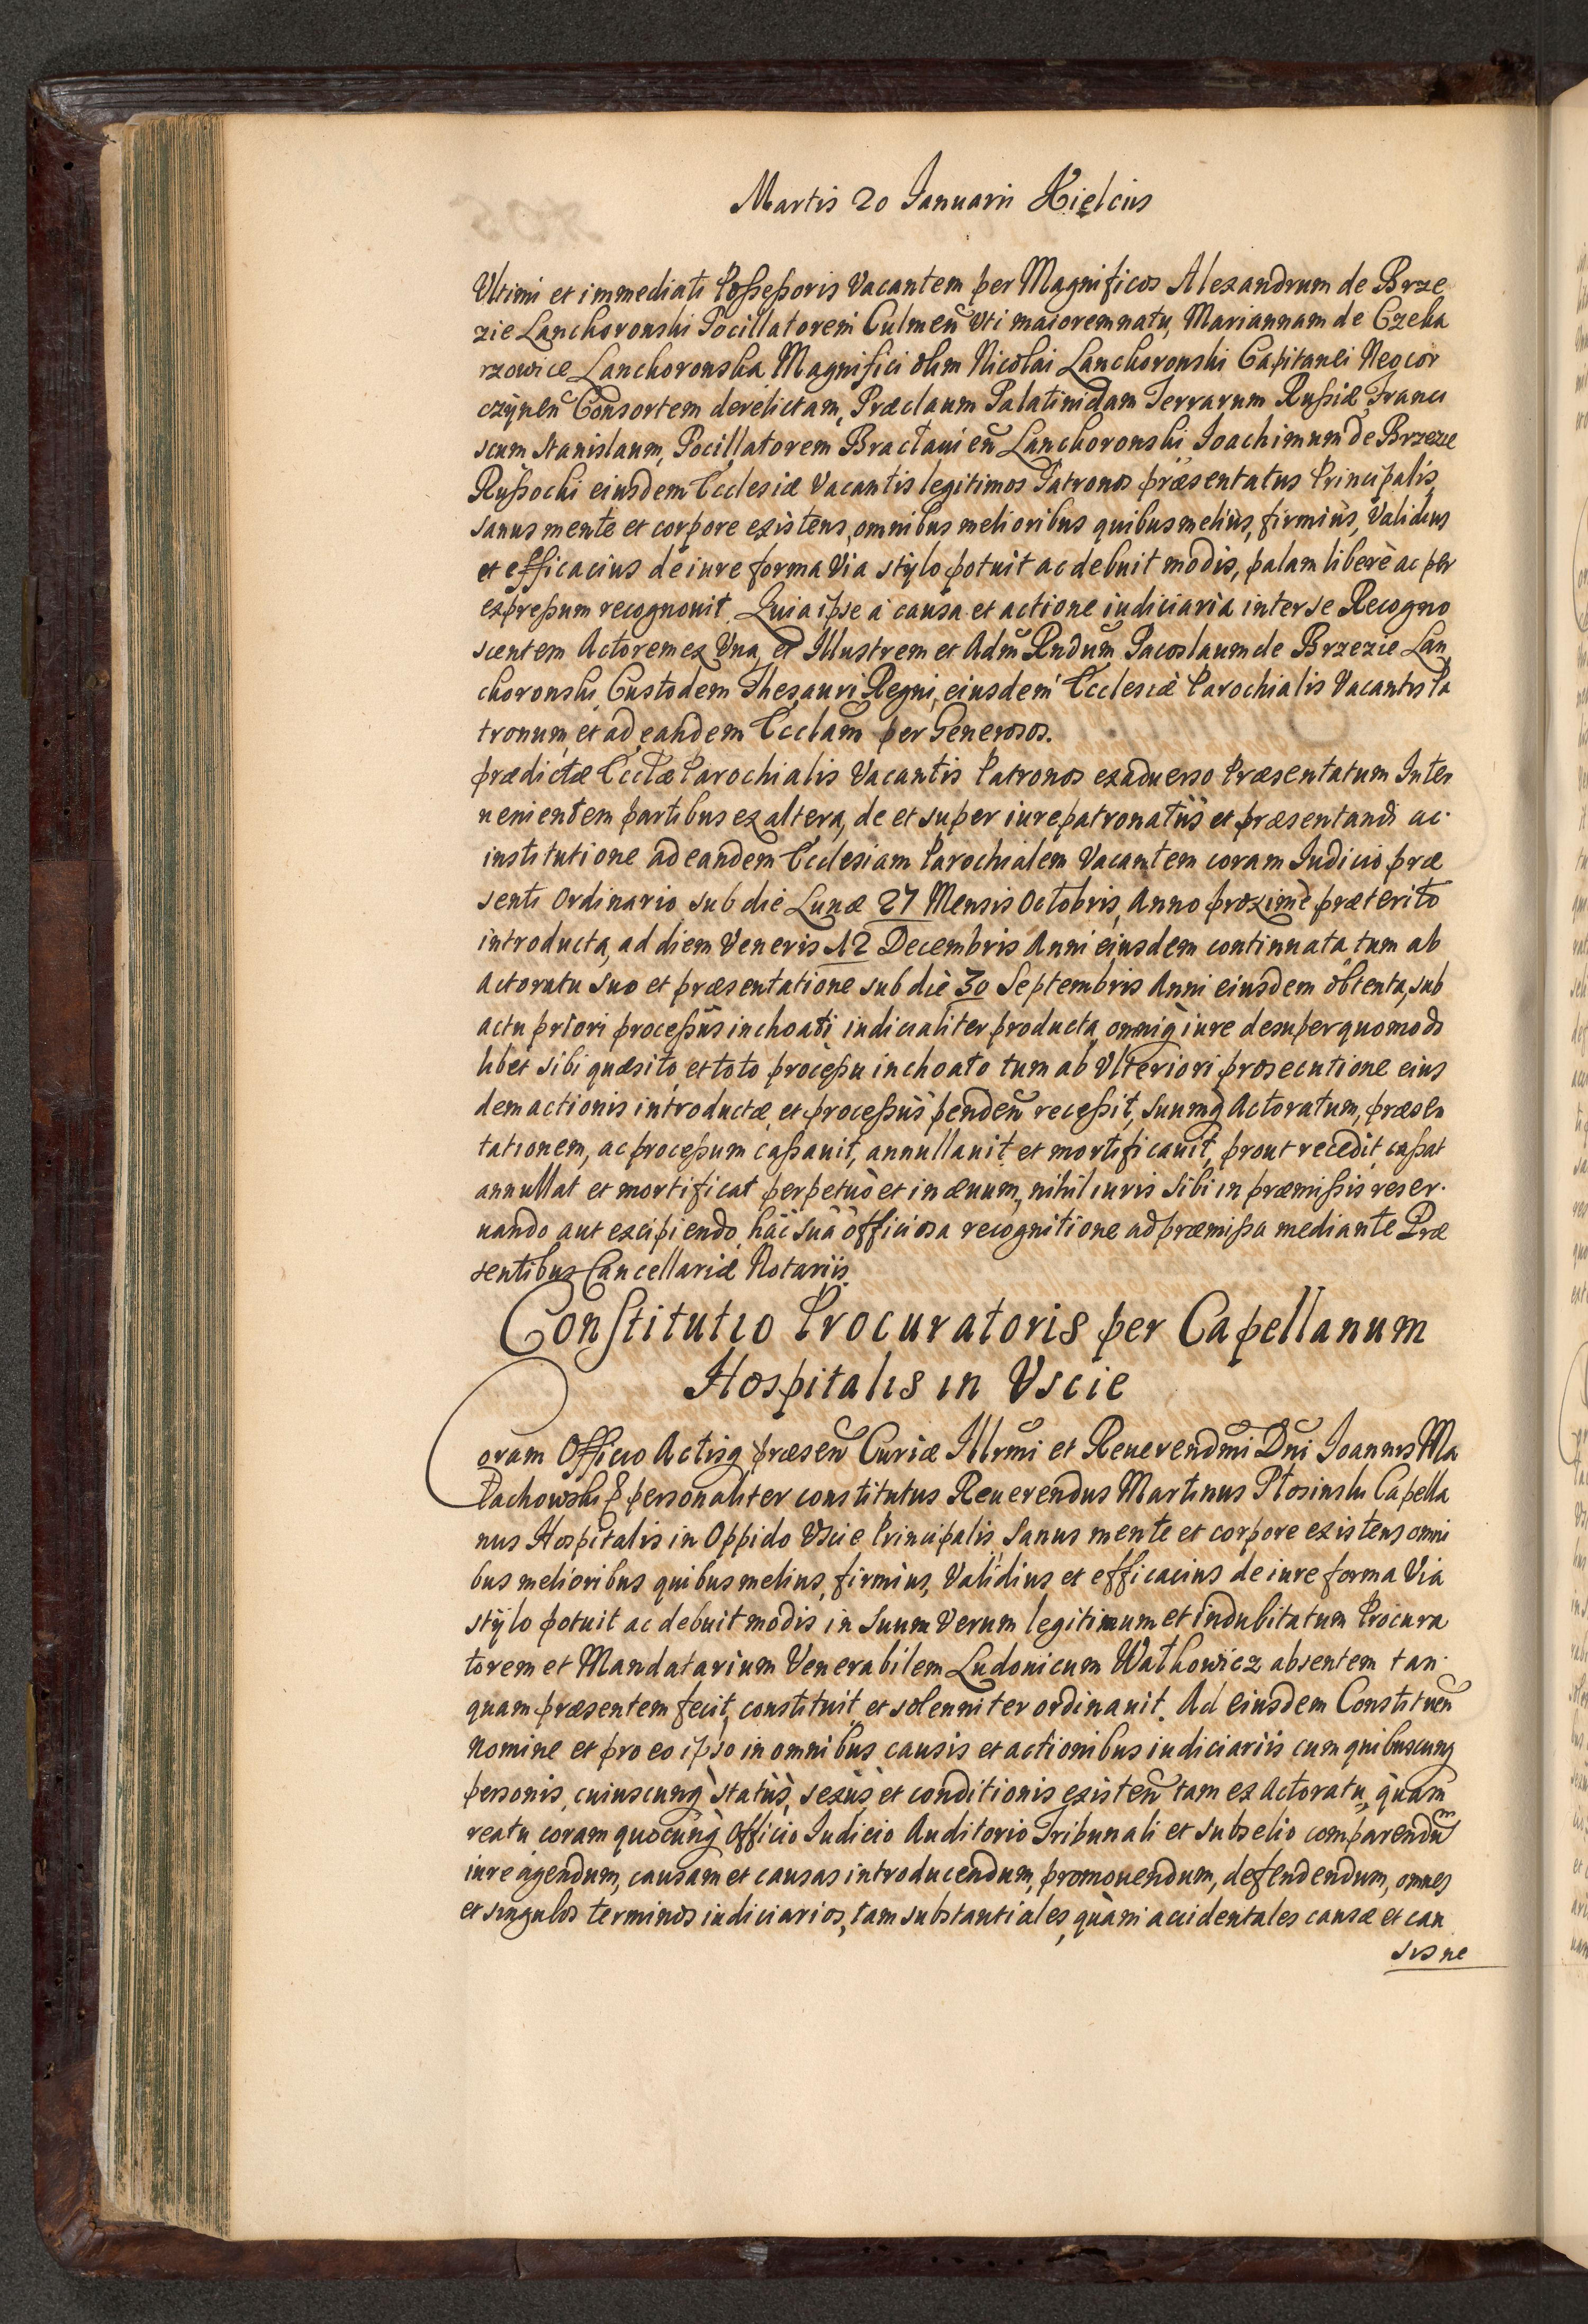 Martis 20 Ianuarii Kielciis
Vltimi et immediati Possessoris Vacantem per Magnificos Alexandrum de Brze
zie Lanckoronski Pocillatorem Culmen̄ vti maiorem natu, Mariannam de Czeka
rzowice Lanckoronska Magnifici olim Nicolai Lanckoronski Capitanei Neocor
czÿnen̄ Consortem derelictam, Præclaum Palatinidam Terrarum Russiæ, Franci
scum Stanislaum, Pocillatorem Bractauien̄ Lanckoronski, Ioachimum de Brzezie
Russocki eiusdem Ecclesiæ Vacantis legitimos Patronos præsentatus Principalis,
sanus mente et corpore existens, omnibus melioribus quibus melius, firmiùs, Validius
et efficacius de iure forma Via stÿlo potuit ac debuit modis, palam liberè ac per
expressum recognouit. Quia ipse à causa et actione iudiciaria inter se Recogno
scentem Actorem ex Vna, et Illustrem et Adm̄ Rndum̄ Pacoslaum de Brzezie Lan
ckoronski Custodem Thesauri Regni, eiusdem Ecclesiæ Parochialis Vacantis Pa
tronum, et ad eandem Eccl̄am per Generosos.
prædictæ Eccl̄æ Parochialis Vacantis Patronos ex aduerso Præsentatum Inter
uenientem partibus ex altera, de et super iurepatronatûs et præsentandi ac
institutione ad eandem Ecclesiam Parochialem Vacantem coram Iudicio præ
senti Ordinario, sub die Lunæ 27 Mensis Octobris, Anno proximè præterito
introducta, ad diem Veneris 12 Decembris Anni eiusdem continuata, tum ab
Actoratu suo et præsentatione sub die 30 Septembris Anni eiusdem obtenta, sub
actu priori processus inchoati iudicialiter producta, omniq̀ iure desuper quomodo
libet sibi quæsito, et toto processu inchoato tum ab Vlteriori prosecutione eius
dem actionis introductæ, et processus penden̄ recessit, suumq̀ Actoratum, præsen
tationem, ac processum cassauit, annullauit et mortificauit, prout recedit, cassat
annullat et mortificat perpetuò et in æuum, nihil iuris sibi in præmissis reser
uando aut excipiendo, hac suâ officiosa recognitione ad præmissa mediante Præ
sentibus Cancellariæ Notariis.
Constitutio Procuratoris per Capellanum
Hospitalis in Vscie
Coram Officio Actisq̀ præsen̄ Curiæ Illrmi et Reuerendm̄i Dn̄i Ioannis Ma
łachowski & personaliter constitutus Reuerendus Martinus Płosinski Capella
nus Hospitalis in Oppido Vscie Principalis, Sanus mente et corpore existens omni
bus melioribus quibus melius, firmius, Validius et efficacius de iure forma Via
stÿlo potuit ac debuit modis in suum Verum legitimum et indubitatum Procura
torem et Mandatarium Venerabilem Ludouicum Wałkowicz absentem tan
quam præsentem fecit, constituit et solenniter ordinauit. Ad eiusdem Constituen̄
Nomine et pro eo ipso in omnibus causis et actionibus iudiciariis cum quibuscunq̀
personis, cuiuscunq̀ statûs, sexûs, et conditionis existen̄ tam ex Actoratu, quàm
reatu coram quocunq̀ Officio Iudicio Auditorio Tribunali et subselio comparendum
iure agendum, causam et causas introducendum, promouendum, defendendum, omnes
et singulos terminos iudiciarios, tam substantiales, quàm accidentales causæ et cau
sis ne